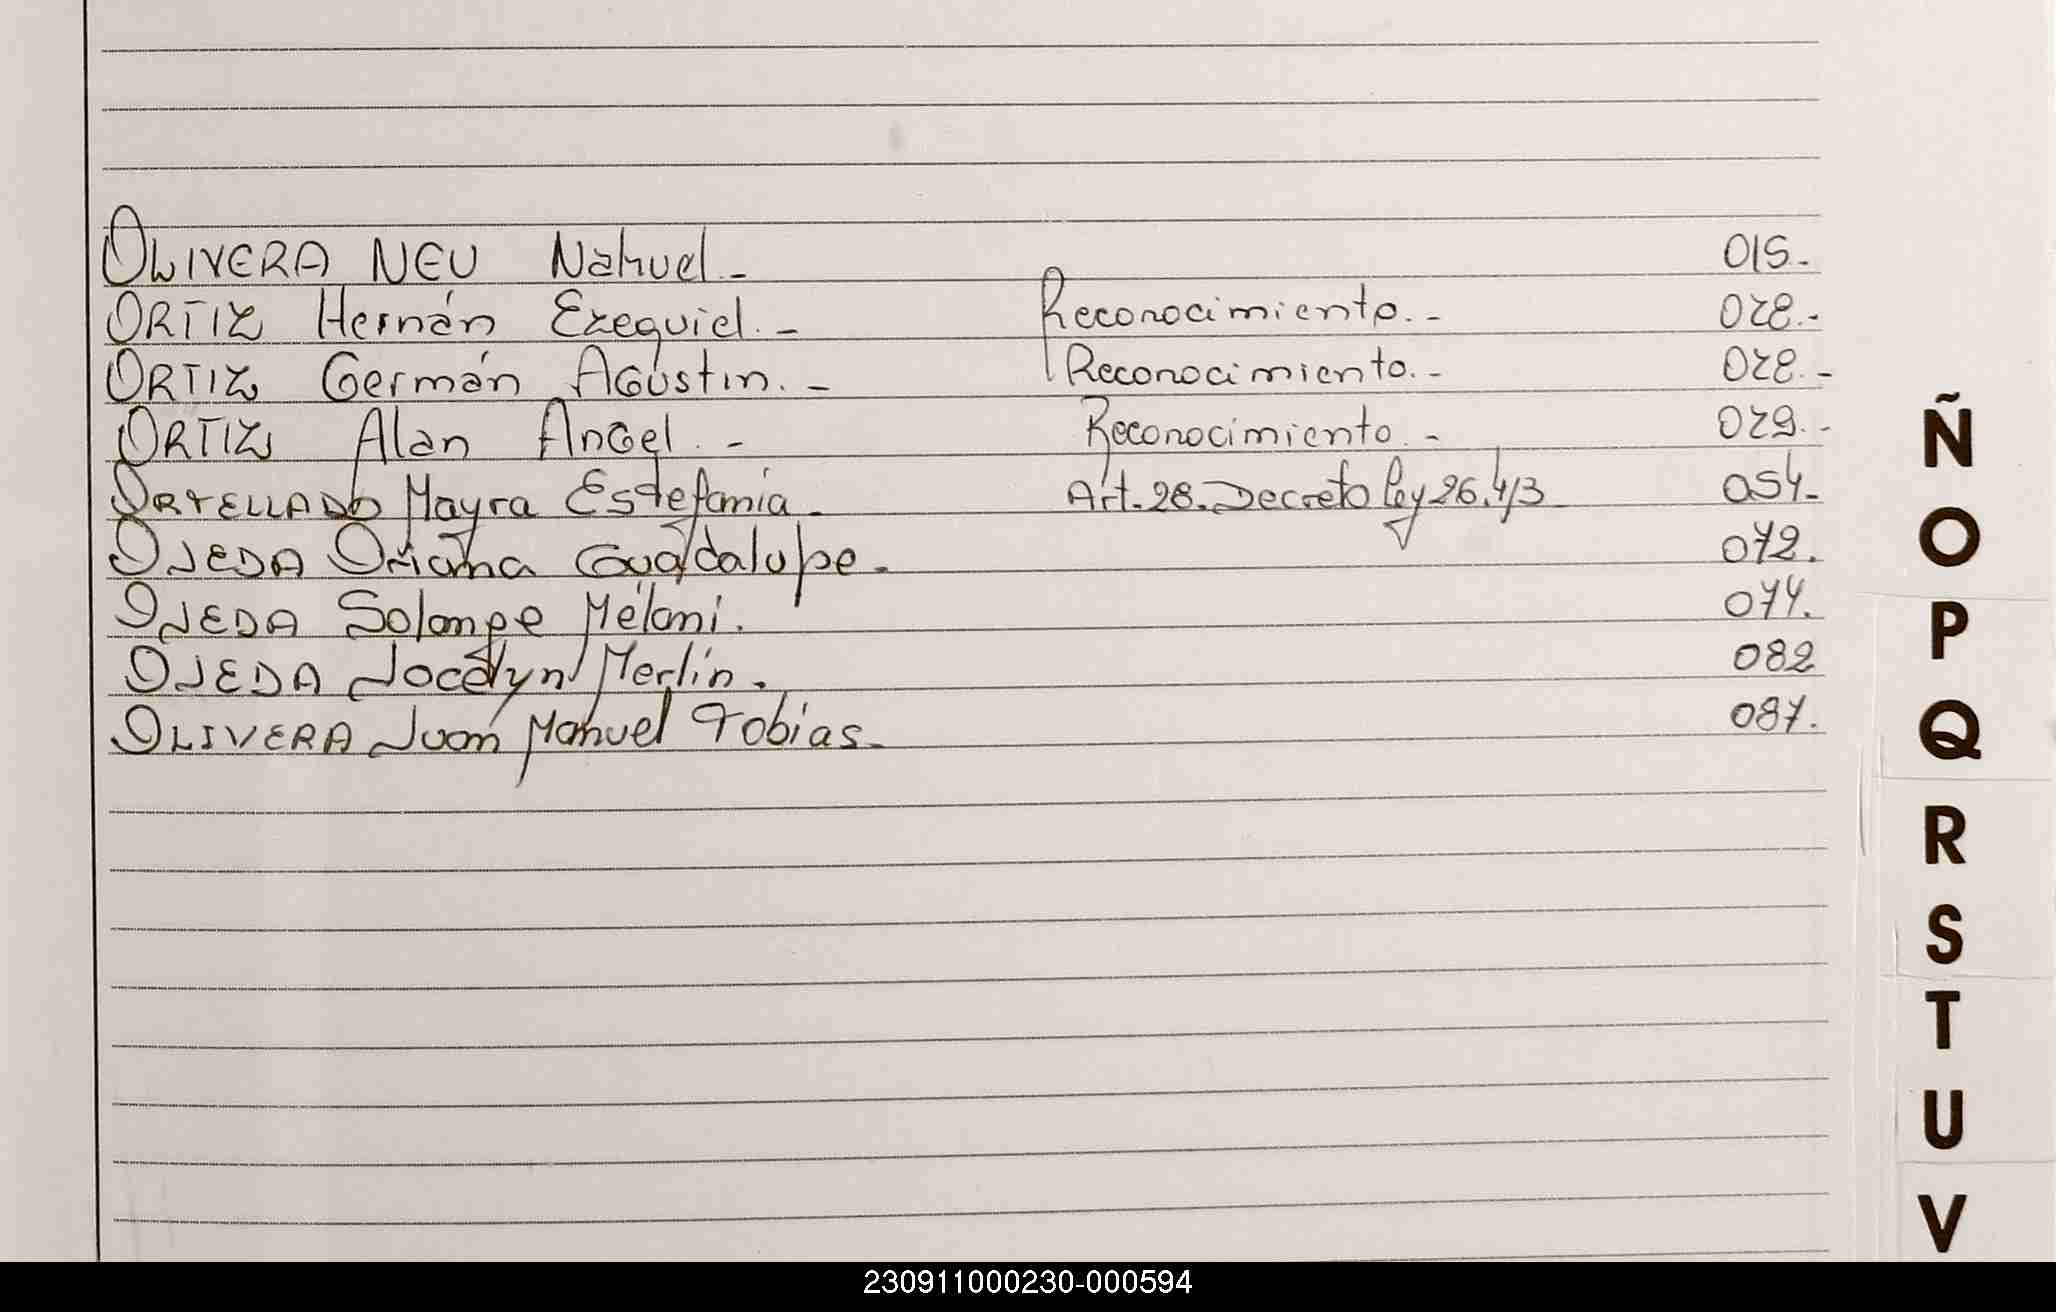 OLIVERA NEU Nahuel.- 015.-
ORTIZ Hernán Ezequiel.- Reconocimiento.- 028.-
ORTIZ Germán Agustin.- Reconocimiento.- 028.-
ORTIZ Alan Angel.- Reconocimiento.- 029.-
ORTELLADO Mayra Estefania.- Art.28.Decreto ley 26.413 054.-
OJEDA Oriana Guadalupe.- 072.
OJEDA Solange Melani. 074.
OJEDA Jocelyn Merlin. 082
OLIVERA Juan Manuel Tobias.- 087.
Ñ
O
P
Q
R
S
T
U
V
230911000230-000594